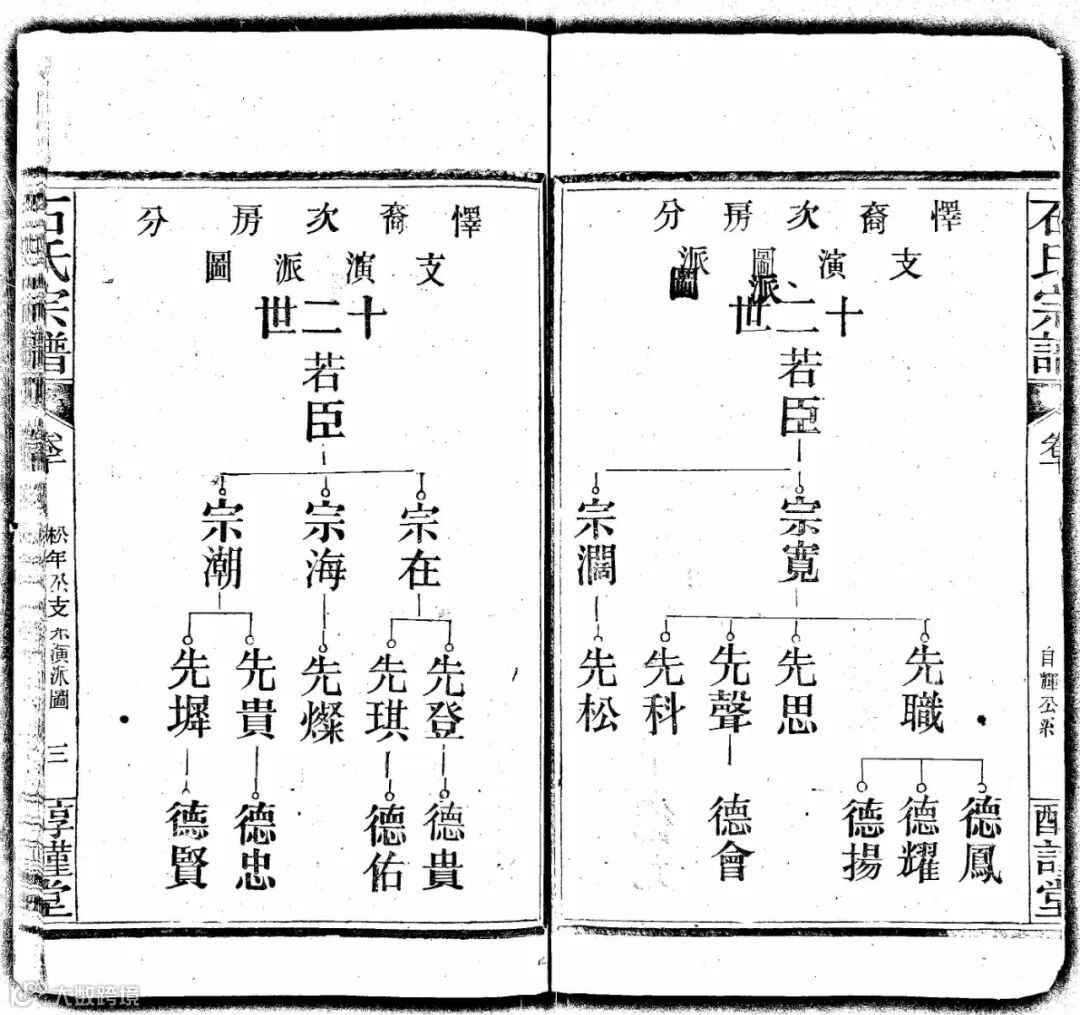 石氏宗譜
卷十
自輝公系
懌裔次房分
支演圖派
派圖
十二世
若臣
宗寬
宗濶
先職
先思
先聲
先科
先松
德鳳
德耀
德揚
德會
懌裔次房分
支演派圖
十二世
若臣
宗在
宗海
宗潮
先登
先琪
先燦
先貴
先墀
德貴
德佑
德忠
德賢
石氏宗譜
卷十
松年公支演派圖
三
惇謹堂
大数跨境